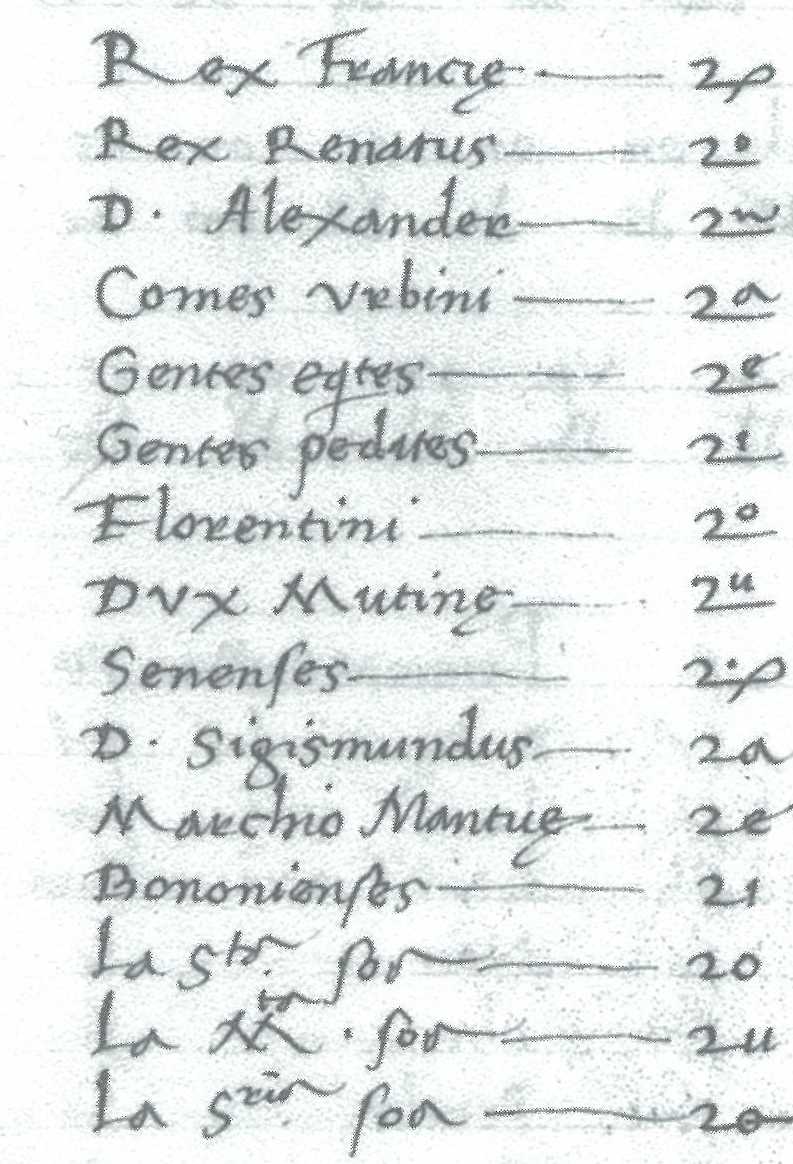 Rex Francię 2p
Rex Renatus 2º
D. Alexander 2
Comes vrbini 2ª
Gentes eqtes 2ᵉ
Gentes pedites 2ⁱ
Florentini 2º
Dvx Mutinę 2ᵘ
Senenſes 2·p
D. Sigismundus 2a
Marchio Mantuę 2e
Bononienſes 21
La Sᵗᵃ. 20
La 2u
La 2o